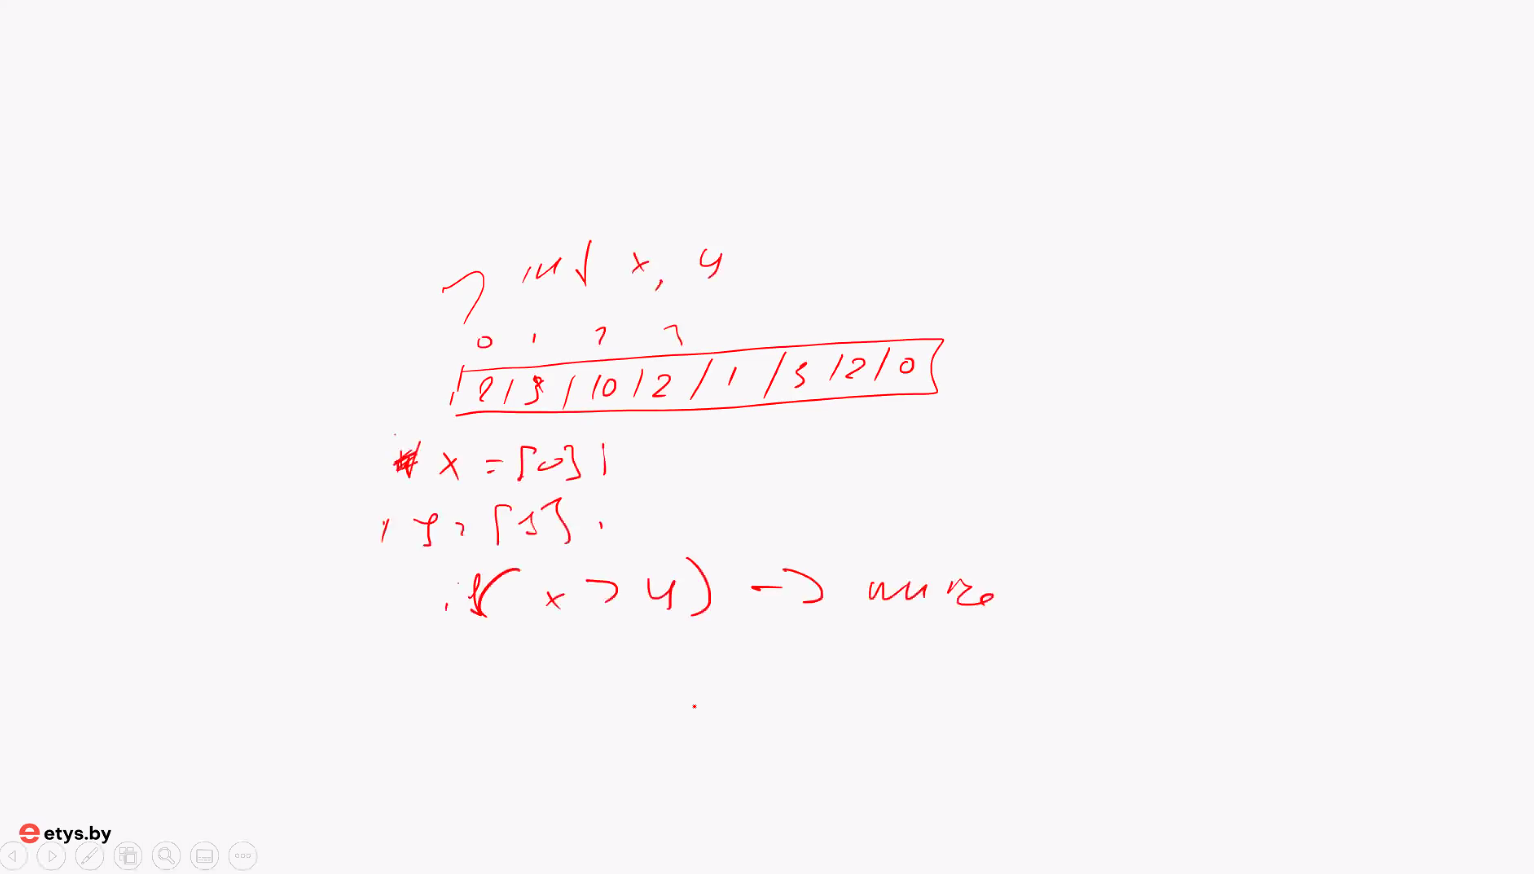 int x, y
0 1 2 3
2 / 3 / 10 / 2 / 1 / 5 / 2 / 0
x = [0]
y = [1]
if ( x > y ) ->
etys.by